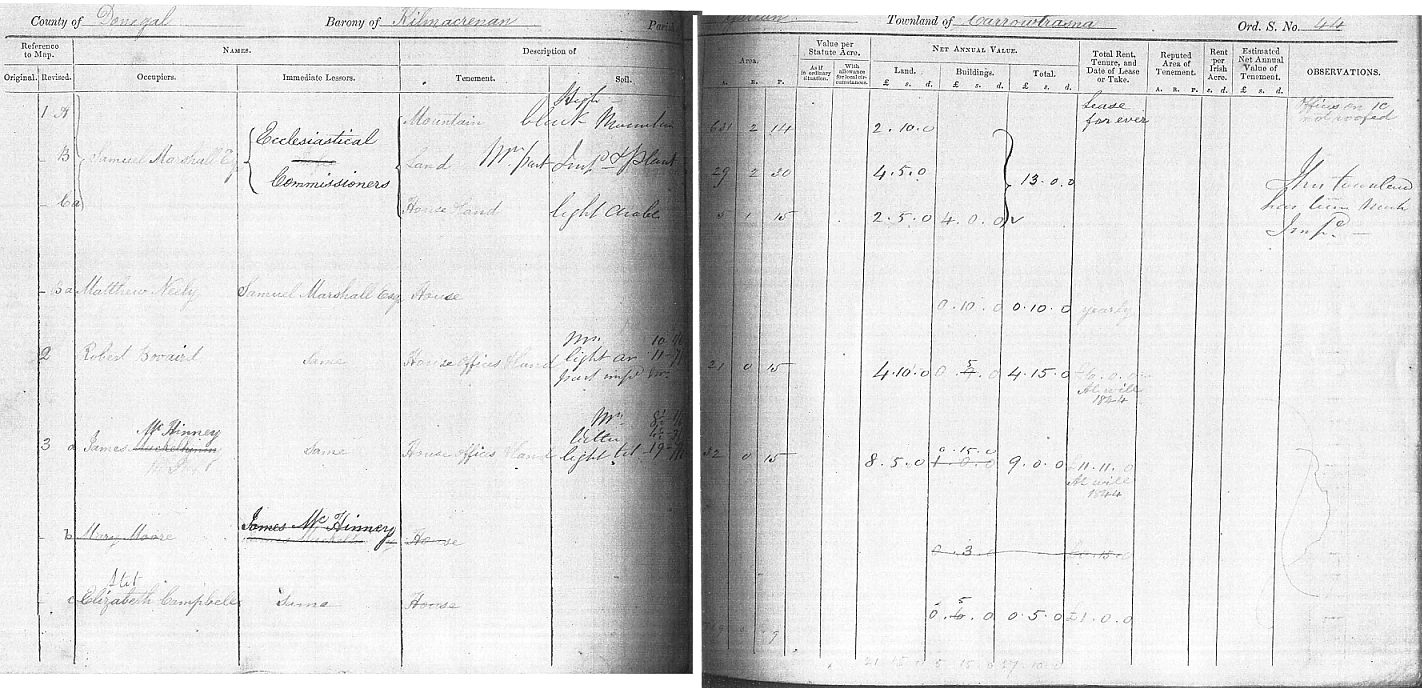 County of Donegal Barony of Kilmacrenan Parish
Townland of Carrowtrasna Ord. S. No. 44
Reference to Map. NAMES. Description of
Original. Revised. Occupiers. Immediate Lessors. Tenement. Soil.
Area. Value per Statute Acre. NET ANNUAL VALUE. Total Rent, Tenure, and Date of Lease or Take. Reputed Area of Tenement. Rent per Irish Acre. Estimated Net Annual Value of Tenement. OBSERVATIONS.
As if in ordinary situation. With allowance for local circumstances. Land. Buildings. Total.
A. R. P. £ s. d. £ s. d. £ s. d. A. R. P. s. d. £ s. d.
1 A Mountain High black Mountain 631 2 14 2.10.0 Lease for ever Offices on 1C not roofed
- B Samuel Marshall Esq Ecclesiastical Commissioners Land Mn part Impd & plant 29 2 30 4.5.0 13.0.0 This townland has been much Impd.
- Ca House & land light arable 5 1 15 2.5.0 4.0.0
- Ba Matthew Neily Samuel Marshall Esq House 0.10.0 0.10.0 yearly
2 Robert Bovaird Same House offices & land Mn light ar part impd 21 0 15 4.10.0 0.5.0 4.15.0 At will 1844
3 a James McHinney Same House offices & land Mn light 32 0 15 8.5.0 0.15.0 1.0.0 9.0.0 £11.11.0 At will 1844
- b Mary Moore James McHinney House 0.3.0
- c Elizabeth Campbell Same House 0.5.0 0.5.0 £1.0.0